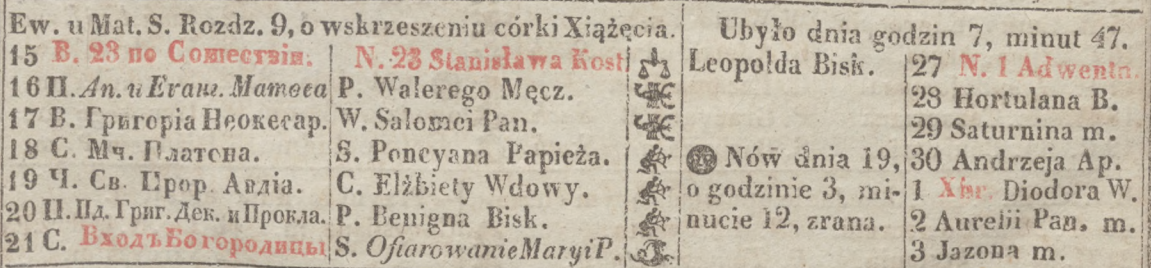 Ew. u Mat. S. Rozdz. 9, o wskrzeszeniu córki Xiążęcia.
Ubyło dnia godzin 7, minut 47.
15 В. 23 по Сошествіи. N. 23 Stanisława Kost Leopolda Bisk. 27 N. 1 Adwentn.
16 П. Ап. и Еванг. Матѳеа P. Walerego Męcz. 28 Hortulana B.
17 В. Григоріа Неокесар. W. Salomei Pan. 29 Saturnina m.
18 С. Мч. Платона. S. Poncyana Papieża. Nów dnia 19, 30 Andrzeja Ap.
19 Ч. Св. Прор. Авдіа. C. Elżbiety Wdowy. o godzinie 3, mi- 1 Xbr. Diodora W.
20 П. Пд. Григ. Дек. и Прокла. P. Benigna Bisk. nucie 12, zrana. 2 Aurelii Pan. m.
21 С. Входъ Богородицы S. Ofiarowanie Maryi P. 3 Jazona m.